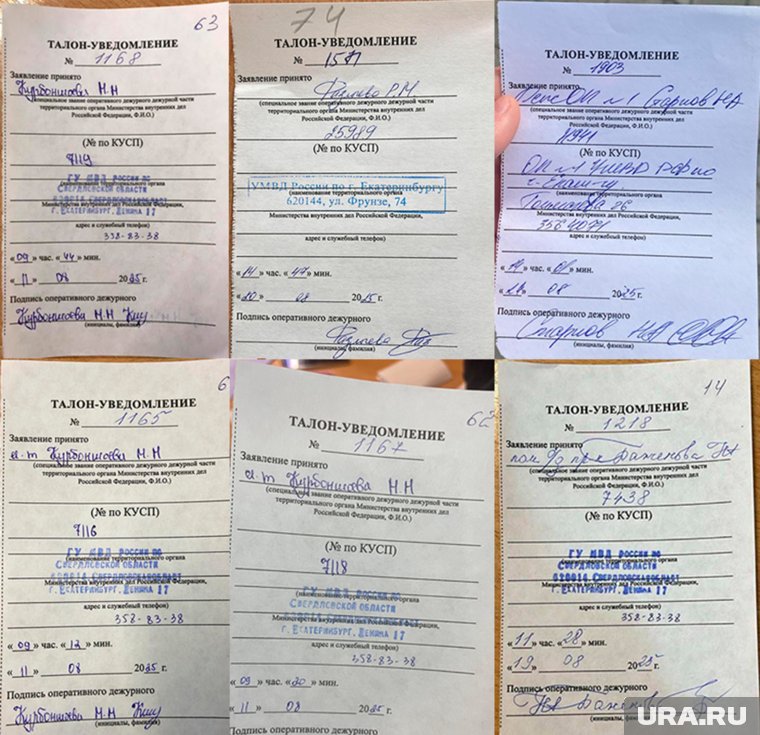 63
ТАЛОН-УВЕДОМЛЕНИЕ
№ 1168
Заявление принято
Курбонисова М.Н
(специальное звание оперативного дежурного дежурной части
территориального органа Министерства внутренних дел
Российской Федерации, Ф.И.О.)
(№ по КУСП)
7119
ГУ МВД РОССИИ ПО
(наименование территориального органа
СВЕРДЛОВСКОЙ ОБЛАСТИ
Министерства внутренних дел Российской Федерации,
Г.ЕКАТЕРИНБУРГ, ЛЕНИНА 17
адрес и служебный телефон)
358-83-38
«09» час. «44» мин.
«11» 08 2025 г.
Подпись оперативного дежурного
Курбонисова М.Н
(инициалы, фамилия)
74
ТАЛОН-УВЕДОМЛЕНИЕ
№
Заявление принято
(специальное звание оперативного дежурного дежурной части
территориального органа Министерства внутренних дел
Российской Федерации, Ф.И.О.)
(№ по КУСП)
25989
УМВД России по г. Екатеринбургу
(наименование территориального органа
620144, ул. Фрунзе, 74
Министерства внутренних дел Российской Федерации,
адрес и служебный телефон)
«14» час. «47» мин.
«20» 08 2025 г.
Подпись оперативного дежурного
(инициалы, фамилия)
ТАЛОН-УВЕДОМЛЕНИЕ
№ 1903
Заявление принято
ОП №1 Старков НА
(специальное звание оперативного дежурного дежурной части
территориального органа Министерства внутренних дел
Российской Федерации, Ф.И.О.)
(№ по КУСП)
ОП №1 УМВД
(наименование территориального органа
Министерства внутренних дел Российской Федерации,
адрес и служебный телефон)
час. мин.
08 2025 г.
Подпись оперативного дежурного
Старков НА
(инициалы, фамилия)
6
ТАЛОН-УВЕДОМЛЕНИЕ
№ 1165
Заявление принято
Курбонисова М.Н
(специальное звание оперативного дежурного дежурной части
территориального органа Министерства внутренних дел
Российской Федерации, Ф.И.О.)
(№ по КУСП)
7116
ГУ МВД РОССИИ ПО
(наименование территориального органа
СВЕРДЛОВСКОЙ ОБЛАСТИ
Министерства внутренних дел Российской Федерации,
Г.ЕКАТЕРИНБУРГ, ЛЕНИНА 17
адрес и служебный телефон)
358-83-38
«09» час. «12» мин.
«11» 08 2025 г.
Подпись оперативного дежурного
Курбонисова М.Н
(инициалы, фамилия)
62
ТАЛОН-УВЕДОМЛЕНИЕ
№ 1167
Заявление принято
Курбонисова М.Н
(специальное звание оперативного дежурного дежурной части
территориального органа Министерства внутренних дел
Российской Федерации, Ф.И.О.)
(№ по КУСП)
7118
ГУ МВД РОССИИ ПО
(наименование территориального органа
СВЕРДЛОВСКОЙ ОБЛАСТИ
Министерства внутренних дел Российской Федерации,
Г.ЕКАТЕРИНБУРГ, ЛЕНИНА 17
адрес и служебный телефон)
358-83-38
«09» час. «20» мин.
«11» 08 2025 г.
Подпись оперативного дежурного
14
ТАЛОН-УВЕДОМЛЕНИЕ
№ 1218
Заявление принято
Баженова
(специальное звание оперативного дежурного дежурной части
территориального органа Министерства внутренних дел
Российской Федерации, Ф.И.О.)
7438
(№ по КУСП)
ГУ МВД РОССИИ ПО
(наименование территориального органа
СВЕРДЛОВСКОЙ ОБЛАСТИ
Министерства внутренних дел Российской Федерации,
Г.ЕКАТЕРИНБУРГ, ЛЕНИНА 17
адрес и служебный телефон)
358-83-38
«11» час. «28» мин.
«19» 08 2025 г.
Подпись оперативного дежурного
(инициалы, фамилия)
URA.RU